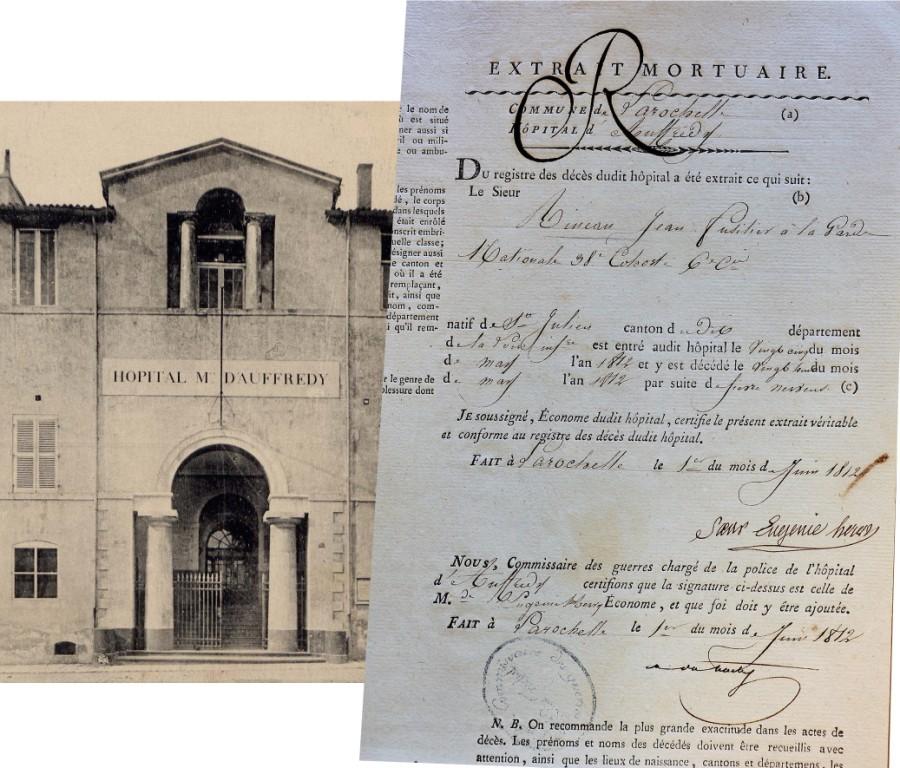 HOPITAL Mre D'AUFFREDY
e le nom de
ù est situé
ner aussi si
il ou mili-
e ou ambu-
les prénoms
dé, le corps
dans lesquels
était enrôlé
onscrit
uelle classe;
ésigner aussi
e canton et
où il a été
remplaçant,
it, ainsi que
nom, com-
département
i qu'il rem-
r le genre de
blessure dont
EXTRAIT MORTUAIRE.
COMMUNE de Larochelle (a)
HÔPITAL d' Auffrédy
DU registre des décès dudit hôpital a été extrait ce qui suit:
Le Sieur (b)
Jean Fusilier à la Garde
Nationale 38e Cohorte 6e Cie
natif de St Julien canton d département
d est entré audit hôpital le vingt cinq du mois
de may l'an 1812 et y est décédé le du mois
de may l'an 1812 par suite de fievre (c)
JE soussigné, Économe dudit hôpital, certifie le présent extrait véritable
et conforme au registre des décès dudit hôpital.
FAIT à Larochelle le 1er du mois de Juin 1812
Sœur Eugenie
NOUS, Commissaire des guerres chargé de la police de l'hôpital
d'Auffrédy certifions que la signature ci-dessus est celle de
M. de Eugenie Économe, et que foi doit y être ajoutée.
FAIT à Larochelle le 1er du mois de Juin 1812
Commissaire des guerres
N. B. On recommande la plus grande exactitude dans les actes de
décès. Les prénoms et noms des décédés doivent être recueillis avec
attention, ainsi que les lieux de naissance, cantons et départemens, les